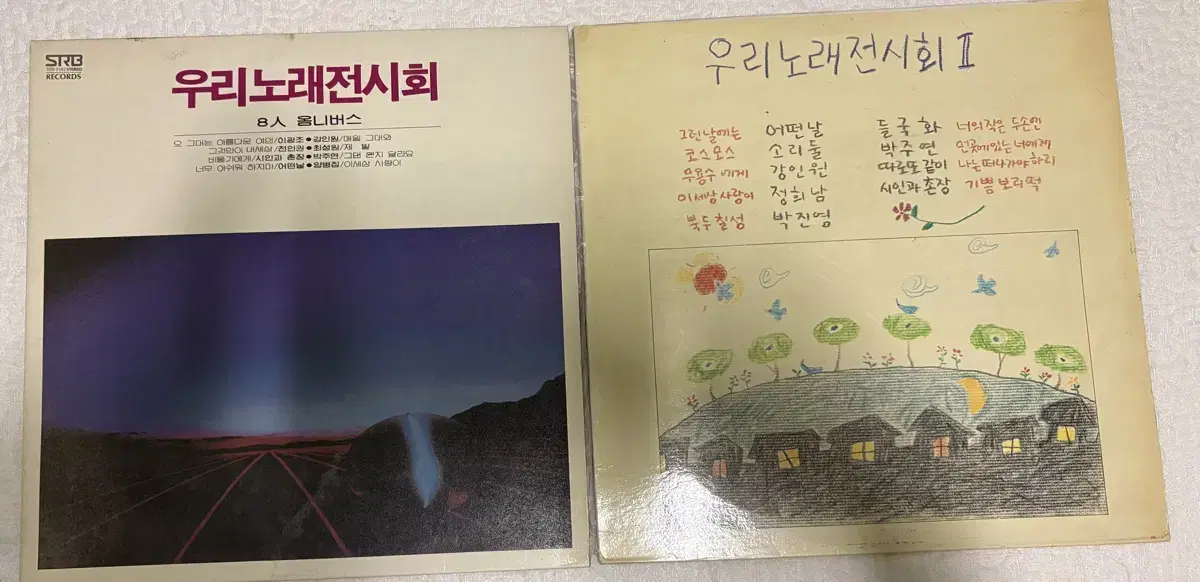 SRB
STEREO
RECORDS
우리노래전시회
8人 옴니버스
오 그대는 아름다운 여인/이광조●강인원/매일 그대와
그것만이 내세상/전인권●최성원/제 발
비둘기에게/시인과 촌장●박주연/그댄 왠지 달라요
너무 아쉬워 하지마/어떤날●양병집/이세상 사랑이
우리노래전시회 II
그런날에는 어떤날
코스모스 소리둘
무용수에게 강인원
이세상사랑이 정희남
북두칠성 박진영
들국화 너의작은두손엔
박주연 먼곳에있는너에게
따로또같이 나는떠나가야하리
시인과촌장 기쁨보리떡